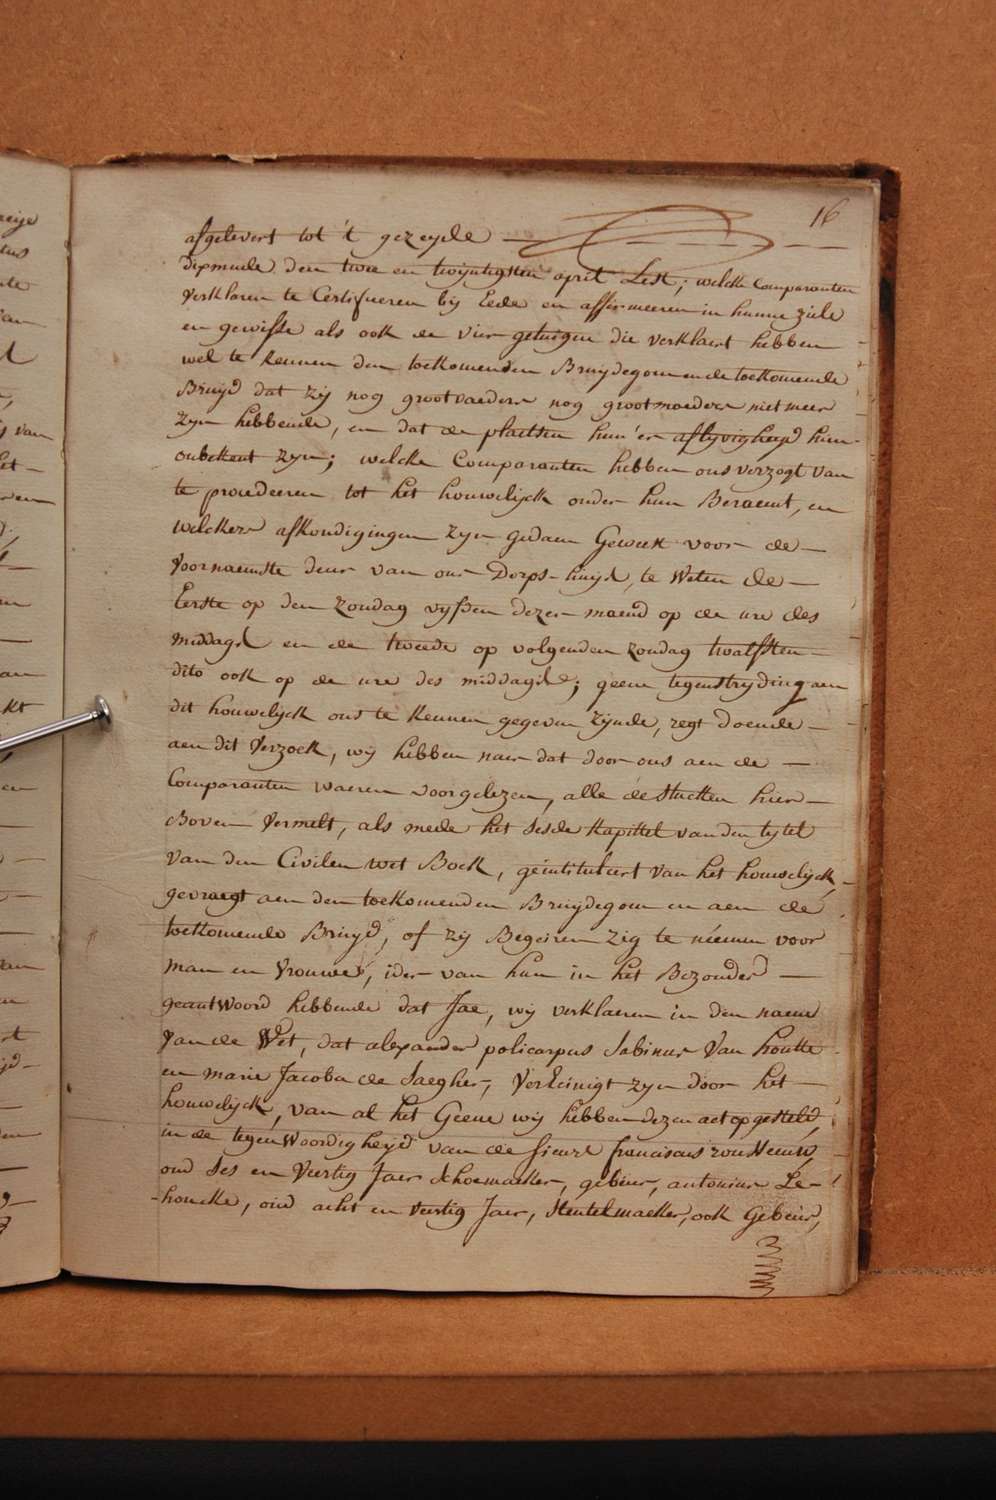 16
afgelevert tot 't gezeyde
dixmude den twee en twijntigsten april Lest; welcke comparanten
verklaren te Certifieren bij Eede en affirmeeren in hunne ziele
en gewisse als ook de vier getuigen die verklaert hebben
wel te kennen den toekomenden Bruydegom en de toekomende
Bruyd dat zij nog grootvaeders nog grootmoeders niet meer
zyn hebbende, en dat de plaetsen hun'er aflyvigheyd hun
onbekent zyn; welcke Comparanten hebben ons verzogt van
te procedeeren tot het houwelijck onder hun Beraemt, en
welckers afkondigingen zyn gedaen Geweest voor de
voornaemste deur van ons Dorps-huijs, te Weten de
Eerste op den zondag vyfden dezer maend op de ure des
middags en de tweede op volgenden zondag twalfsten
dito ook op de ure des middags; geene tegenstryding aen
dit houwelijck ons te kennen gegeven zijnde, regt doende
aen dit Verzoek, wij hebben naer dat door ons aen de
Comparanten waeren voorgelezen, alle de stucken hier
Boven Vermelt, als mede het sesde Kapittel van den tytel
van den Civilen wet Boek, geintituleert van het houwelijck,
gevraegt aen den toekomenden Bruydegom en aen de
toekomende Bruyd, of zij Begeiren zig te neemen voor
man en vrouwe, ider van hun in het Bezonder
geantwoord hebbende dat Jae, wij verklaeren in den naeme
Van de Wet, dat alexander policarpus Sabinus Van houtte
en marie Jacoba de Saegher, Vereinigt zyn door het
houwelijck, van al het Geene wij hebben dezen act opgesteld,
in de tegenwoordigheijd van de sieurs franciscus
oud ses en Veertig Jaer schoemaeker, gebeur, antonius Le-
-houcke, oud acht en veertig Jaer, sleutelmaeker, ook Gebeur,